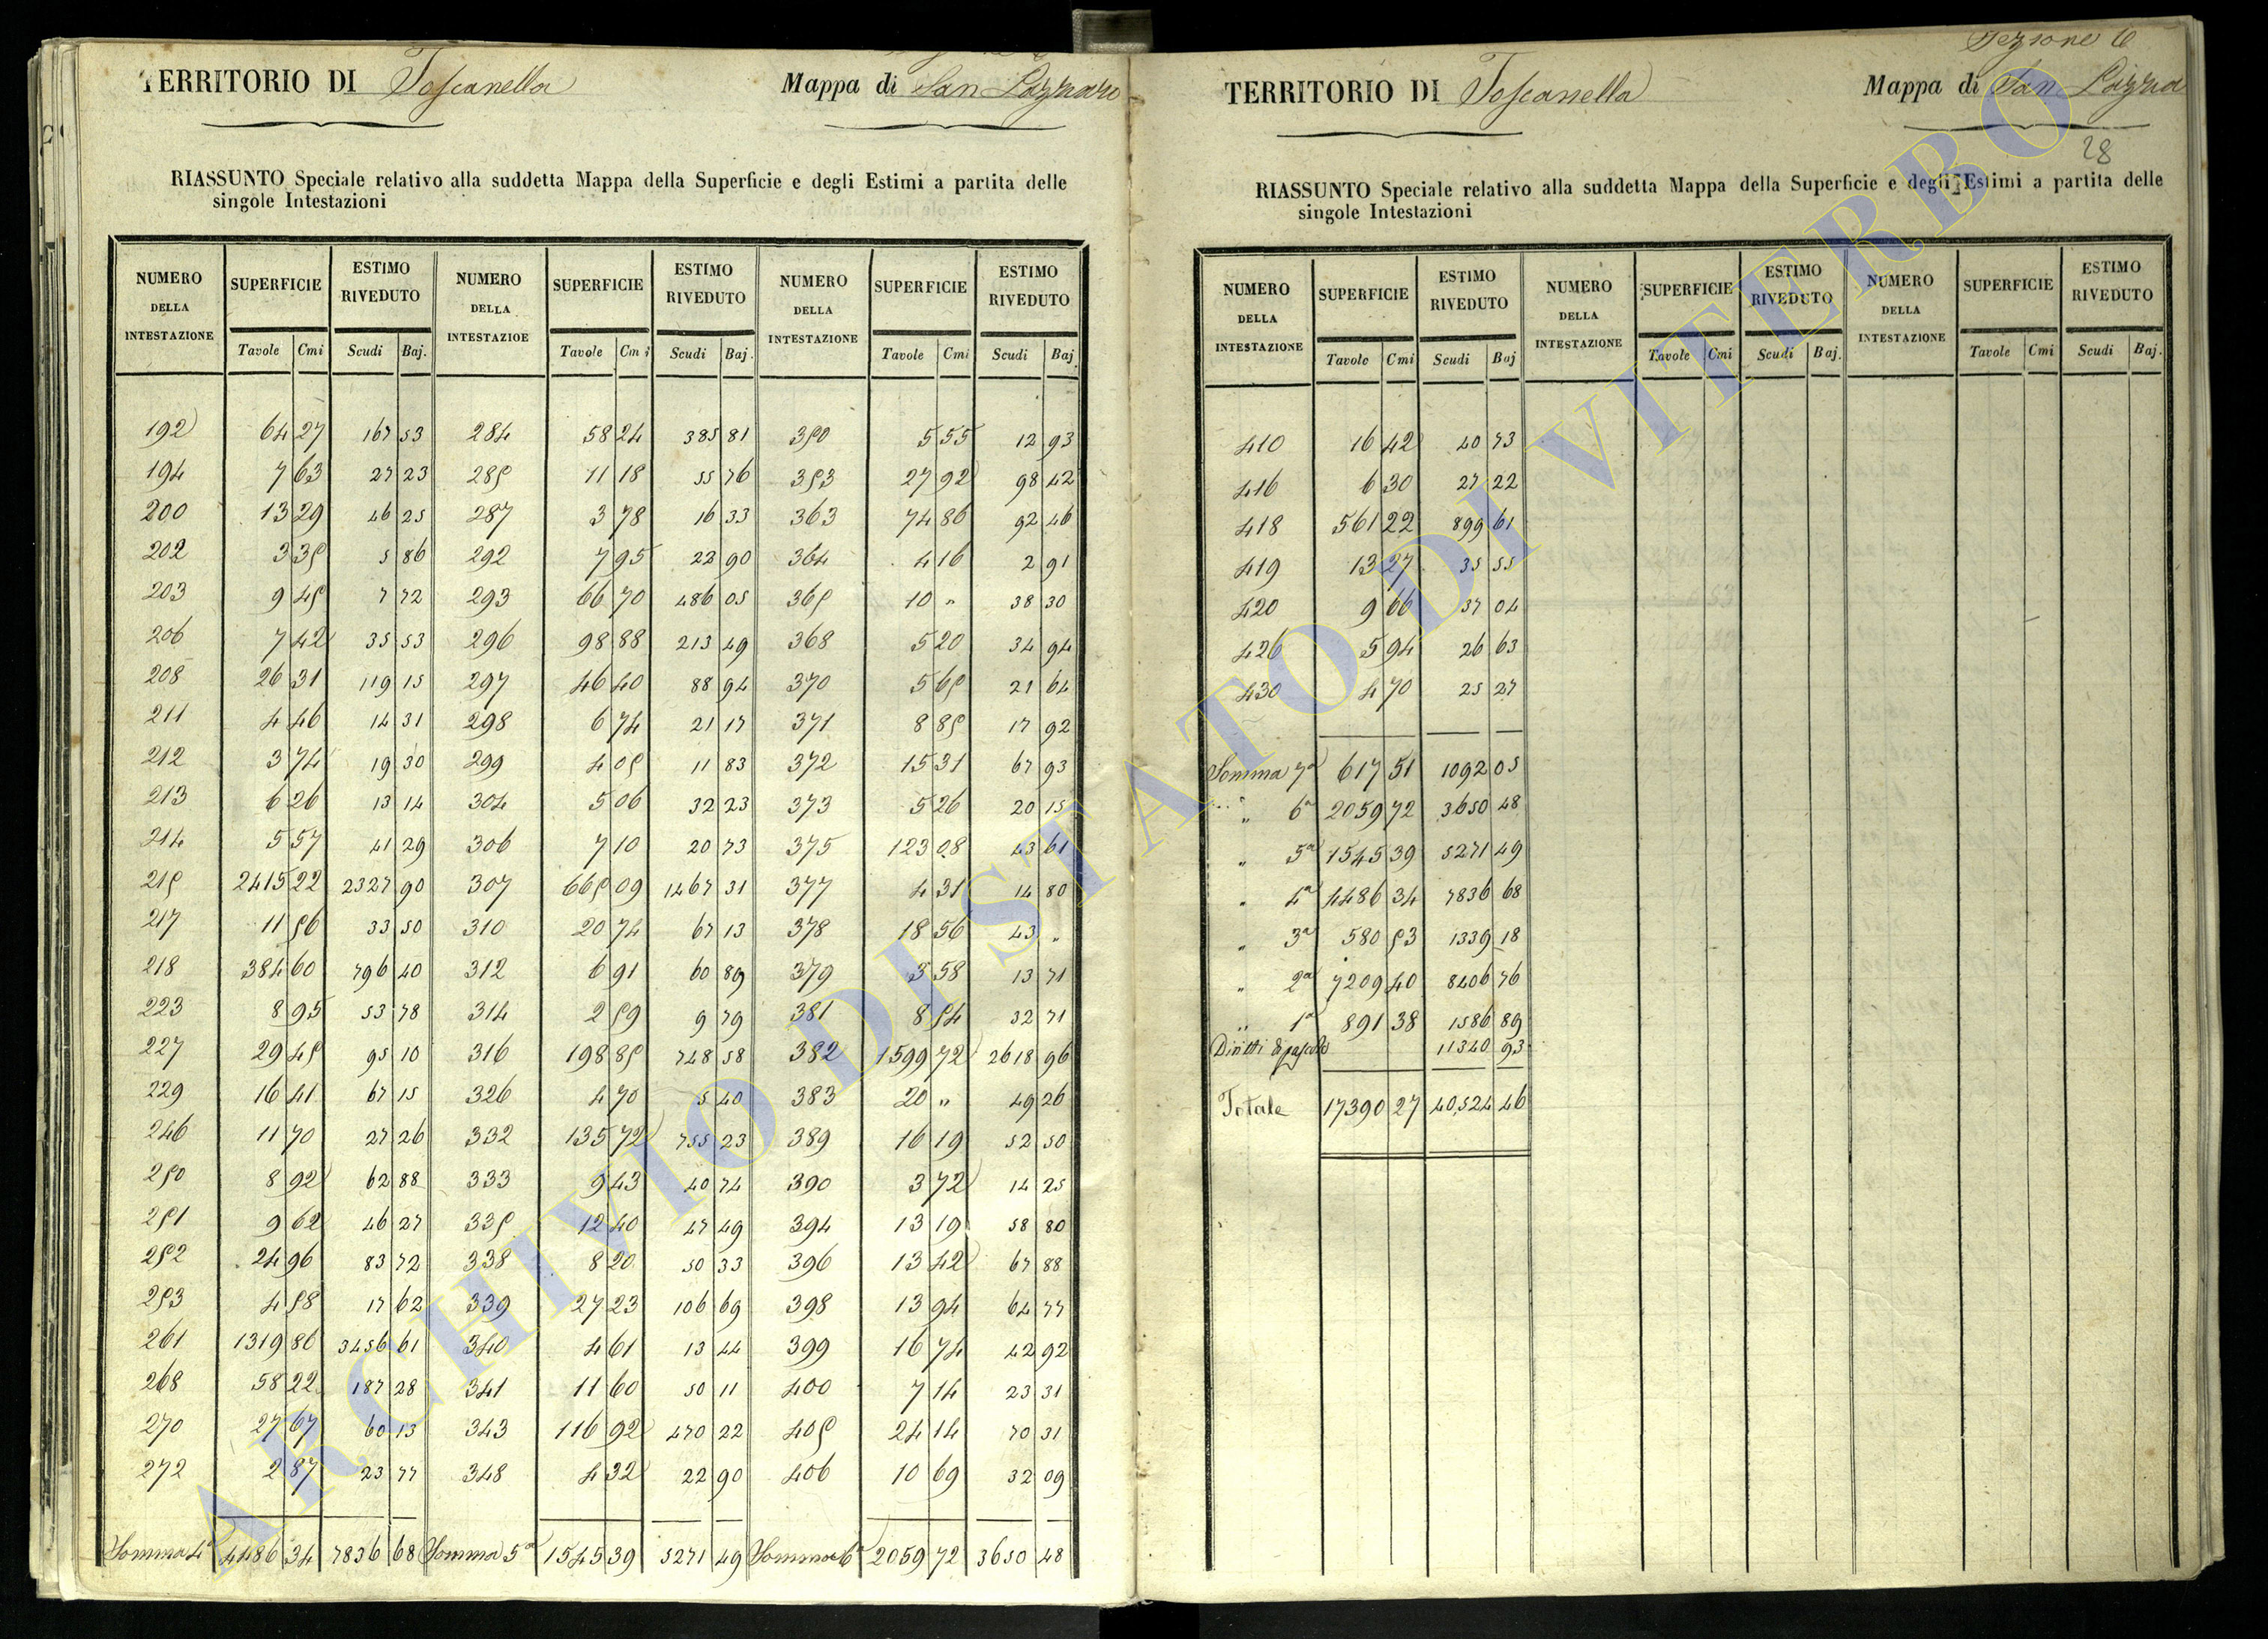 TERRITORIO DI Toscanella Mappa di San Lazzaro
RIASSUNTO Speciale relativo alla suddetta Mappa della Superficie e degli Estimi a partita delle
singole Intestazioni
NUMERO DELLA INTESTAZIONE SUPERFICIE ESTIMO RIVEDUTO NUMERO DELLA INTESTAZIOE SUPERFICIE ESTIMO RIVEDUTO NUMERO DELLA INTESTAZIONE SUPERFICIE ESTIMO RIVEDUTO
Tavole Cmi Scudi Baj. Tavole Cmi Scudi Baj. Tavole Cmi Scudi Baj.
192 64 27 167 53 284 58 24 385 81 350 5 55 12 93
194 7 63 27 23 285 11 18 55 76 353 27 92 98 42
200 13 29 46 25 287 3 78 16 33 363 74 86 92 46
202 3 35 5 86 292 7 95 22 90 364 4 16 2 91
203 9 45 7 72 293 66 70 486 05 365 10 " 38 30
206 7 42 35 53 296 98 88 213 49 368 5 20 34 94
208 26 31 119 15 297 46 40 88 94 370 5 65 21 64
211 4 46 14 31 298 6 74 21 17 371 8 85 17 92
212 3 74 19 30 299 4 05 11 83 372 15 31 67 93
213 6 26 13 14 304 5 06 32 23 373 5 26 20 15
214 5 57 41 29 306 7 10 20 73 375 123 08 43 61
215 2415 22 2327 90 307 665 09 1467 31 377 4 31 14 80
217 11 56 33 50 310 20 74 67 13 378 18 56 43 "
218 384 60 796 40 312 6 91 60 89 379 3 58 13 71
223 8 95 53 78 314 2 59 9 79 381 8 54 32 71
227 29 45 95 10 316 198 85 748 58 382 1599 72 2618 96
229 16 41 67 15 326 4 70 5 40 383 20 " 49 26
246 11 70 27 26 332 135 72 755 23 389 16 19 52 50
250 8 92 62 88 333 9 43 40 74 390 3 72 14 25
251 9 62 46 27 335 12 40 47 49 394 13 19 58 80
252 24 96 83 72 338 8 20 50 33 396 13 42 67 88
253 4 58 17 62 339 27 23 106 69 398 13 94 64 77
261 1319 86 3456 61 340 4 61 13 44 399 16 74 42 92
268 58 22 187 28 341 11 60 50 11 400 7 14 23 31
270 27 67 60 13 343 116 92 470 22 405 24 14 70 31
272 2 87 23 77 348 4 32 22 90 406 10 69 32 09
Somma 4a 4486 34 7836 68 Somma 5a 1545 39 5271 49 Somma 6a 2059 72 3650 48
Sezione 6
TERRITORIO DI Toscanella Mappa di San Lazza
28
RIASSUNTO Speciale relativo alla suddetta Mappa della Superficie e degli Estimi a partita delle
singole Intestazioni
NUMERO DELLA INTESTAZIONE SUPERFICIE ESTIMO RIVEDUTO NUMERO DELLA INTESTAZIONE SUPERFICIE ESTIMO RIVEDUTO NUMERO DELLA INTESTAZIONE SUPERFICIE ESTIMO RIVEDUTO
Tavole Cmi Scudi Baj Tavole Cmi Scudi Baj. Tavole Cmi Scudi Baj.
410 16 42 40 73
416 6 30 27 22
418 561 22 899 61
419 13 27 35 55
420 9 66 37 04
426 5 94 26 63
430 4 70 25 27
Somma 7a 617 51 1092 05
" 6a 2059 72 3650 48
" 5a 1545 39 5271 49
" 4a 4486 34 7836 68
" 3a 580 53 1339 18
" 2a 7209 40 8406 76
" 1a 891 38 1586 89
Diritti di pascolo 11340 93
Totale 17390 27 40,524 46
ARCHIVIO DI STATO DI VITERBO